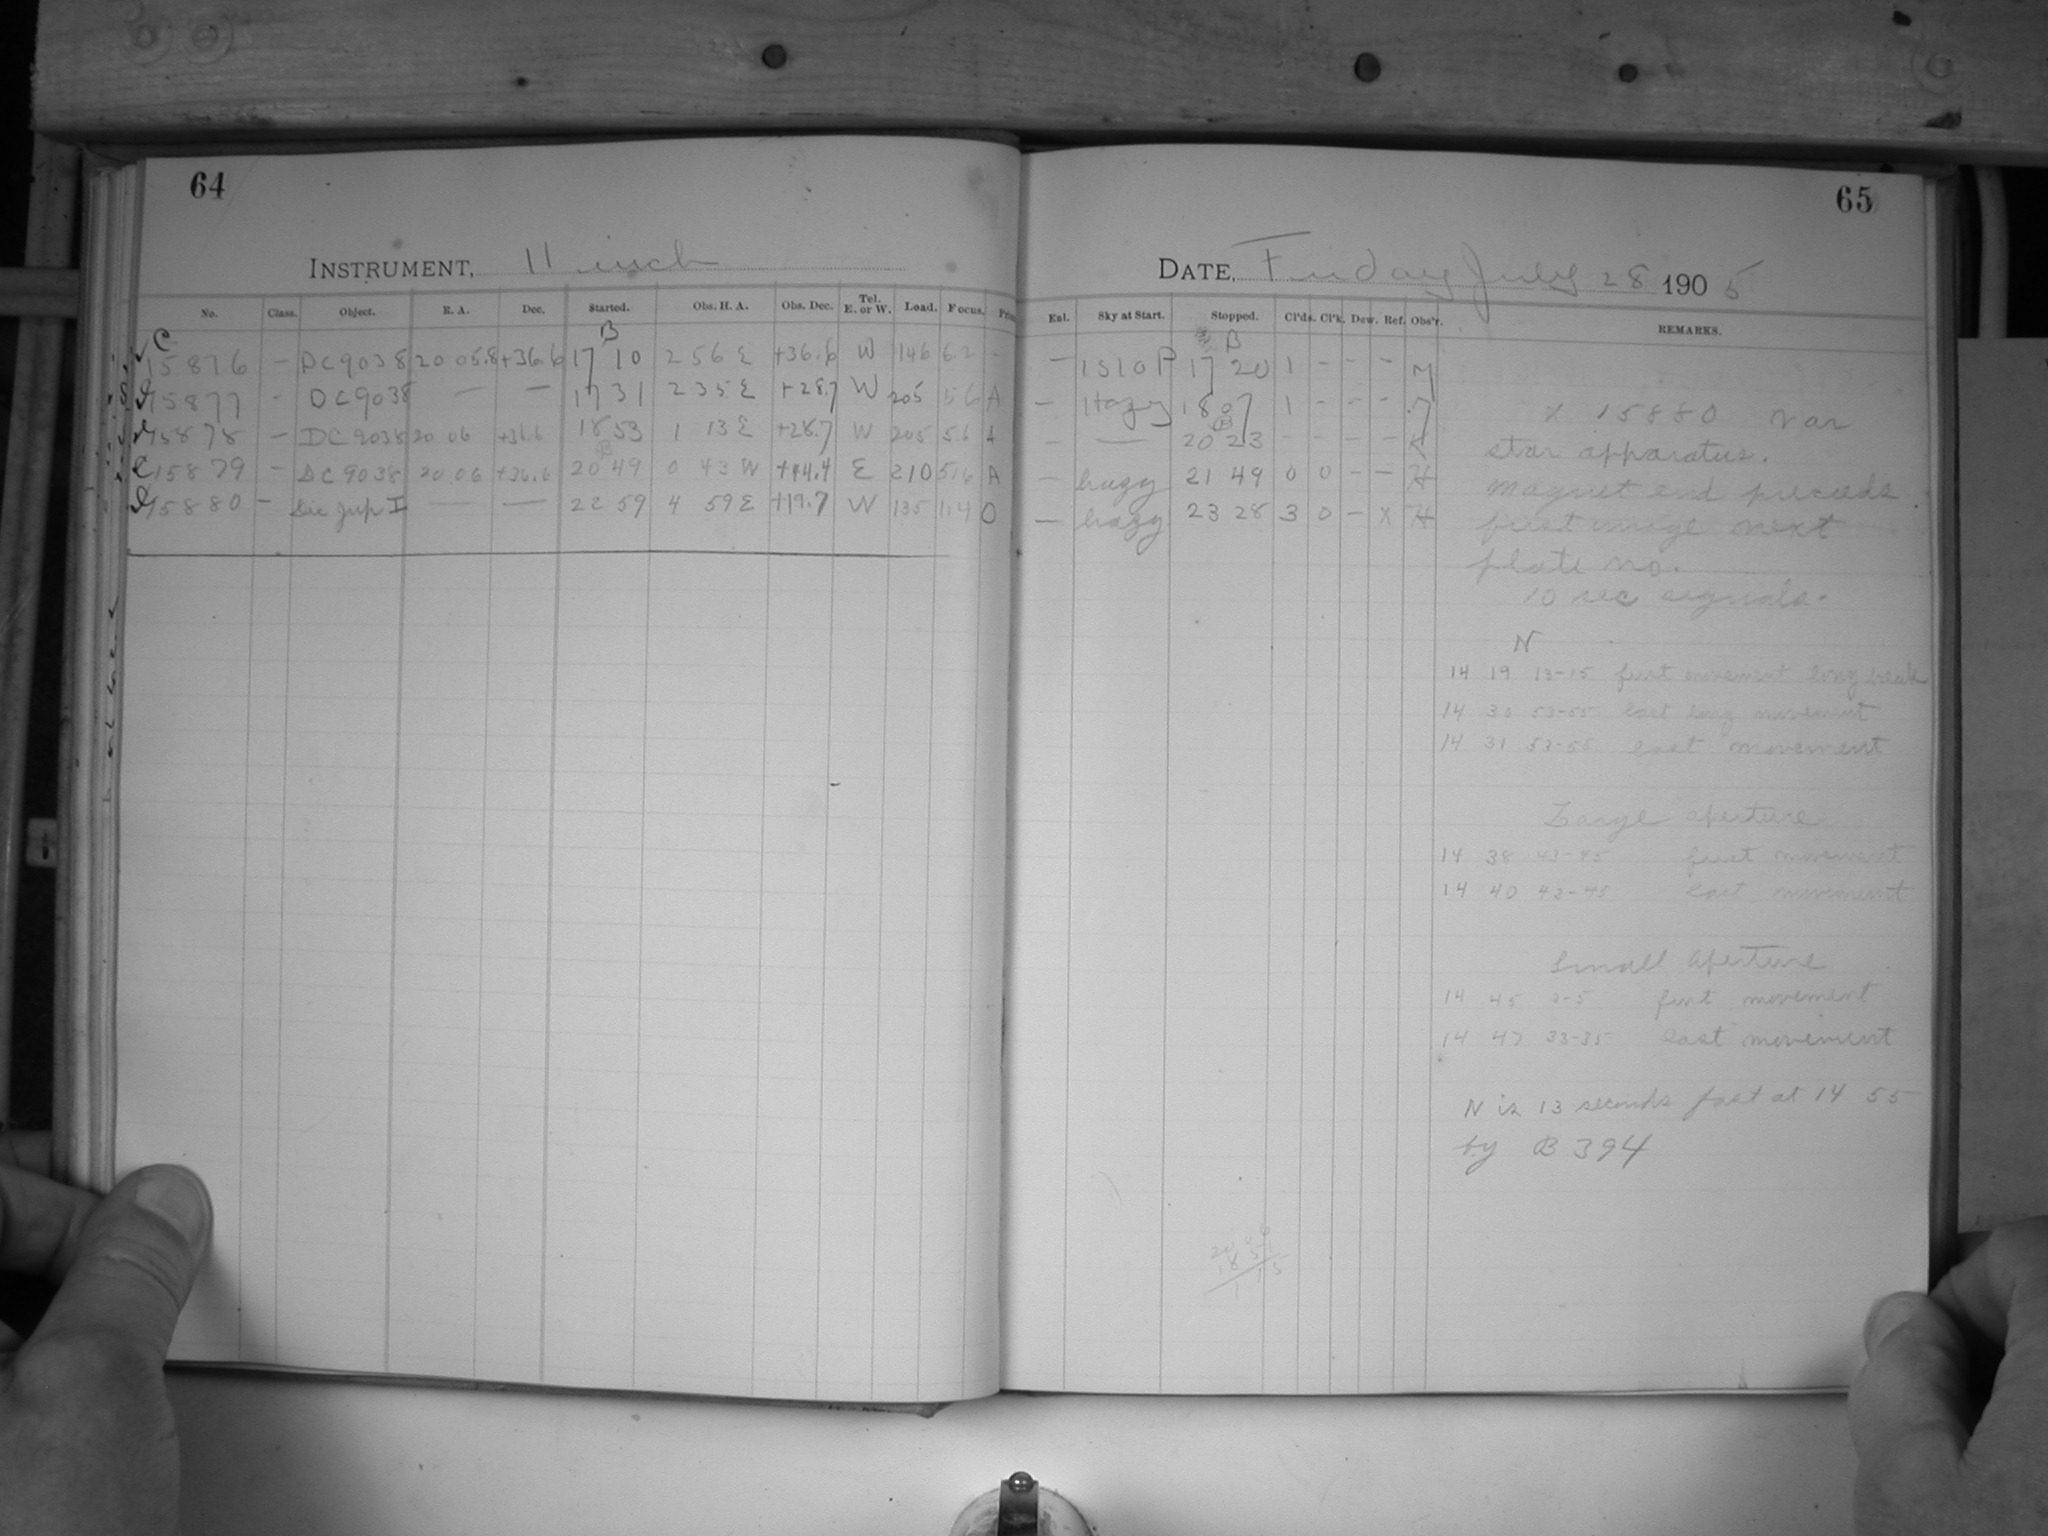 64
INSTRUMENT, 11 inch
No. Class. Object. R. A. Dec. Started. Obs. H. A. Obs. Dec. Tel. E. or W. Load. Focus.
B
C 15876 – DC9038 20 05.8 +36.6 17 10 2 56 E +36.6 W 146 6.2 –
15877 – DC9038 — — 17 31 2 35 E +28.7 W 205 5.6 A
15878 – DC 9038 20 06 +36.6 18 53 1 13 E +28.7 W 205 5.6 A
B
C 15879 – DC 9038 20 06 +36.6 20 49 0 43 W +44.4 E 210 5.6 A
15880 – Jup I — — 22 59 4 59 E +19.7 W 135 11.4 O
65
DATE, Friday July 28 1905
Enl. Sky at Start. Stopped. Cl'ds. Cl'k. Dew. Ref. Obs'r. REMARKS.
B
— 17 20 1 – – –
— Hazy 18 07 1 – – –
B
– — 20 23 – – – –
– hazy 21 49 0 0 – – H
– hazy 23 28 3 0 – X H
X 15880 var
star apparatus.
Magnet end precede
first image next
plate no.
10 sec signals.
N
14 19 13-15 first movement long break
14 30 53-55 last long movement
14 31 53-55 last movement
Large aperture
14 38 43-45 first movement
14 40 43-45 last movement
Small aperture
14 45 3-5 first movement
14 47 33-35 last movement
N is 13 seconds fast at 14 55
by B 394
20 06
18 51
1 15